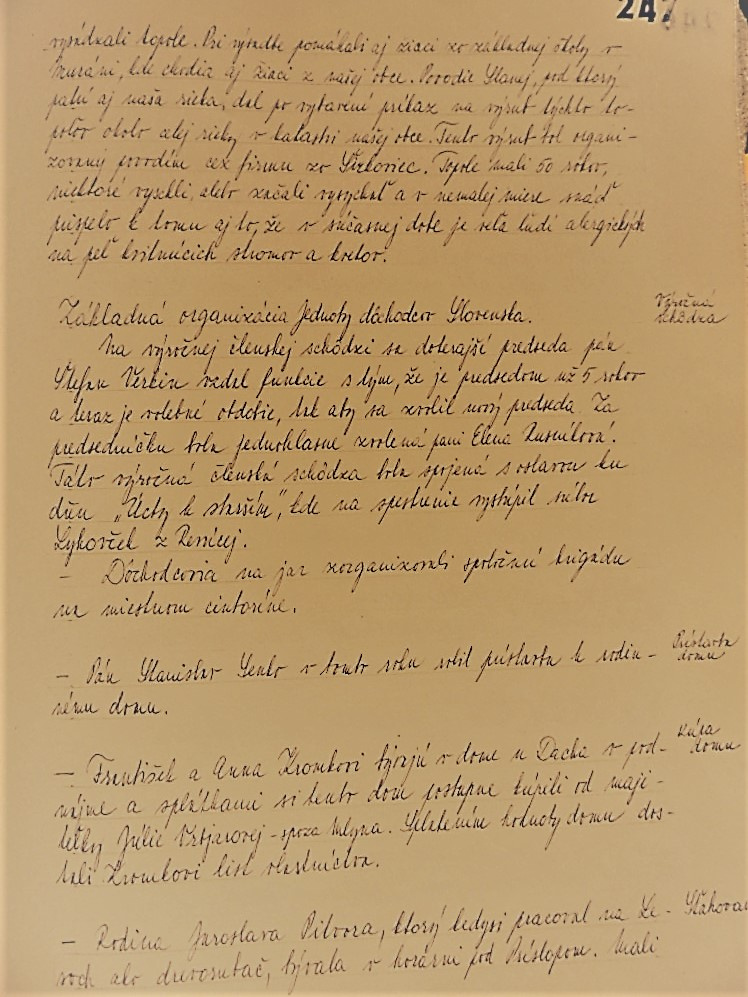 247
vysádzali topole. Pri výsadbe pomáhali aj žiaci zo základnej školy v
Muráni, kde chodia aj žiaci z našej obce. Povodie Slanej, pod ktorý
patrí aj naša rieka, dal po vytvorení príkaz na výrub týchto to-
poľov okolo celej rieky v katastri našej obce. Tento výrub bol organi-
zovaný povodím cez firmu zo
Topole mali 50 rokov,
niektoré vyschli, alebo začali vysychať a v nemalej miere snáď
prispelo k tomu aj to, že v súčasnej dobe je veľa ľudí alergických
na peľ kvitnúcich stromov a kvetov.
Základná organizácia Jednoty dôchodcov Slovenska.
Výročná
schôdza
Na výročnej členskej schôdzi sa doterajší predseda pán
Štefan vzdal funkcie s tým, že je predsedom už 5 rokov
a teraz je volebné obdobie, tak aby sa zvolil nový predseda. Za
predsedníčku bola jednohlasne zvolená pani Elena
Táto výročná členská schôdza bola spojená s oslavou ku
dňu „Úcty k starším", kde na spestrenie vystúpil súbor
Lykovček z Revúcej.
- Dôchodcovia na jar zorganizovali spoločnú brigádu
na miestnom cintoríne.
- Pán Stanislav v tomto roku robil prístavbu k rodin-
nému domu.
Prístavba
domu
- František a Anna Kromkovi bývajú v dome u Dacha v pod-
nájme a splátkami si tento dom postupne kúpili od maji-
teľky Júlie spoza Mlyna. Splatením hodnoty domu dos-
tali Kromkovi list vlastníctva.
kúpa
domu
- Rodina Jaroslava Pitvora, ktorý kedysi pracoval na Le-
soch ako drevorubač, bývala v horárni pod Prístopom. Mali
Sťahovan